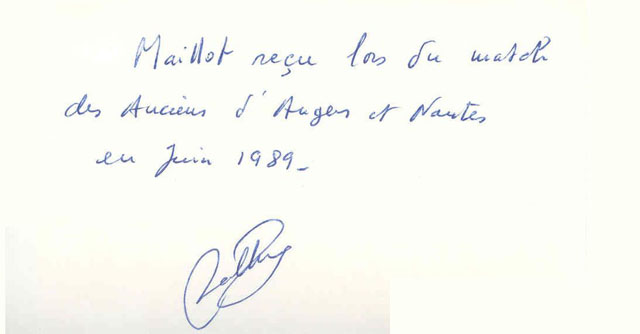 Maillot reçu lors du match
des Anciens d'Angers et Nantes
en Juin 1989_